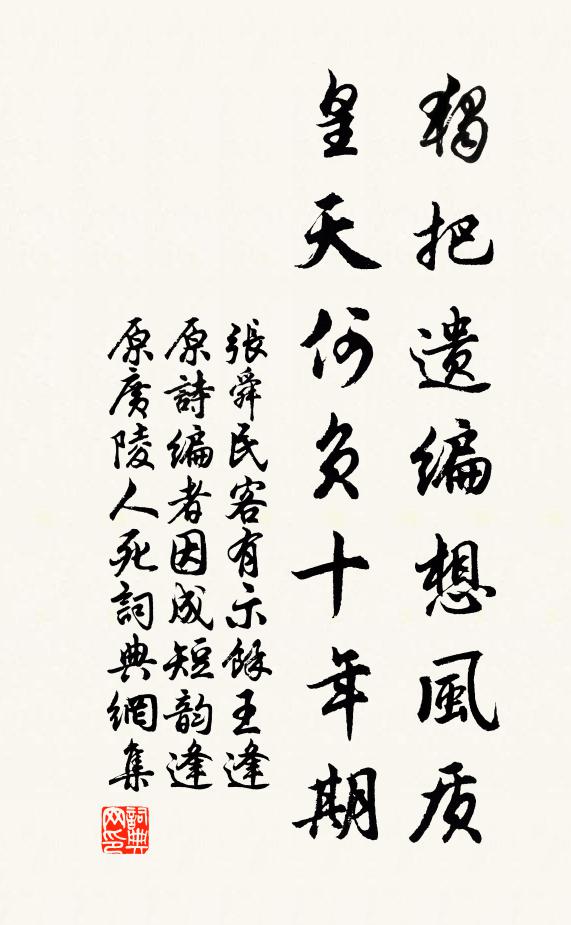 獨把遺編想風质
皇天何負十年期
張舜民客有示餘王逢
原詩編者因成短韵逢
原廣陵人死詞典網集
詞典网印